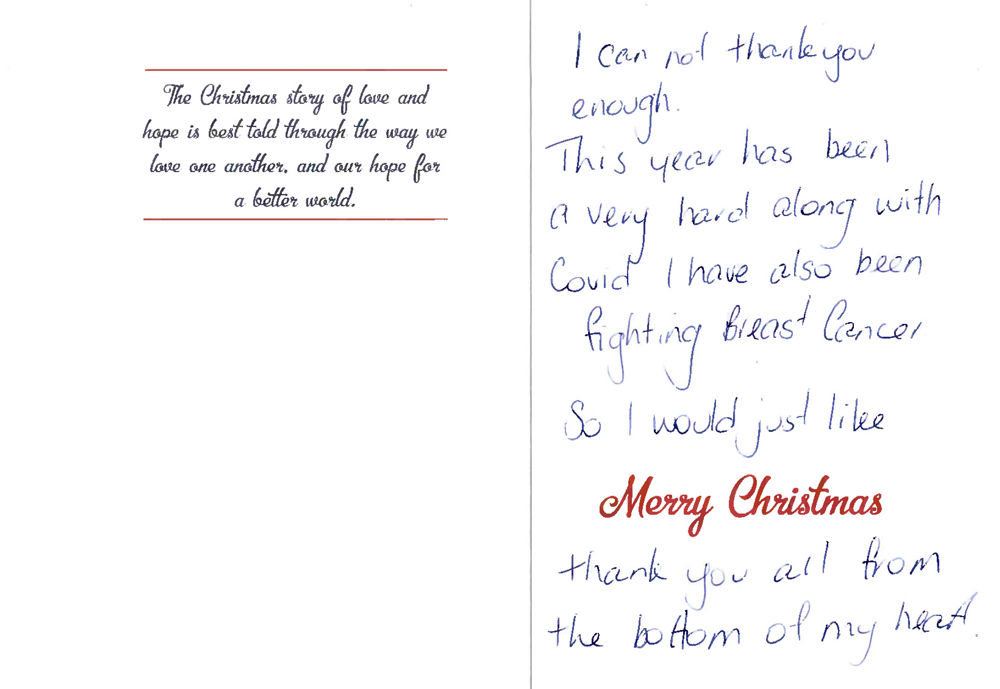 The Christmas story of love and
hope is best told through the way we
love one another, and our hope for
a better world.
I can not thank you
enough.
This year has been
a very hard along with
Covid I have also been
fighting Breast Cancer
So I would just like
Merry Christmas
thank you all from
the bottom of my heart.